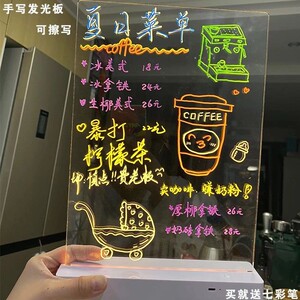 手写发光板
可擦写
夏日菜单
coffee
冰美式 18元
冰拿铁 24元
生椰美式 26元
暴打 22元
柠檬茶
COFFEE
卖咖啡 赚奶粉
厚椰拿铁 26元
奶砖拿铁 28元
买就送七彩笔